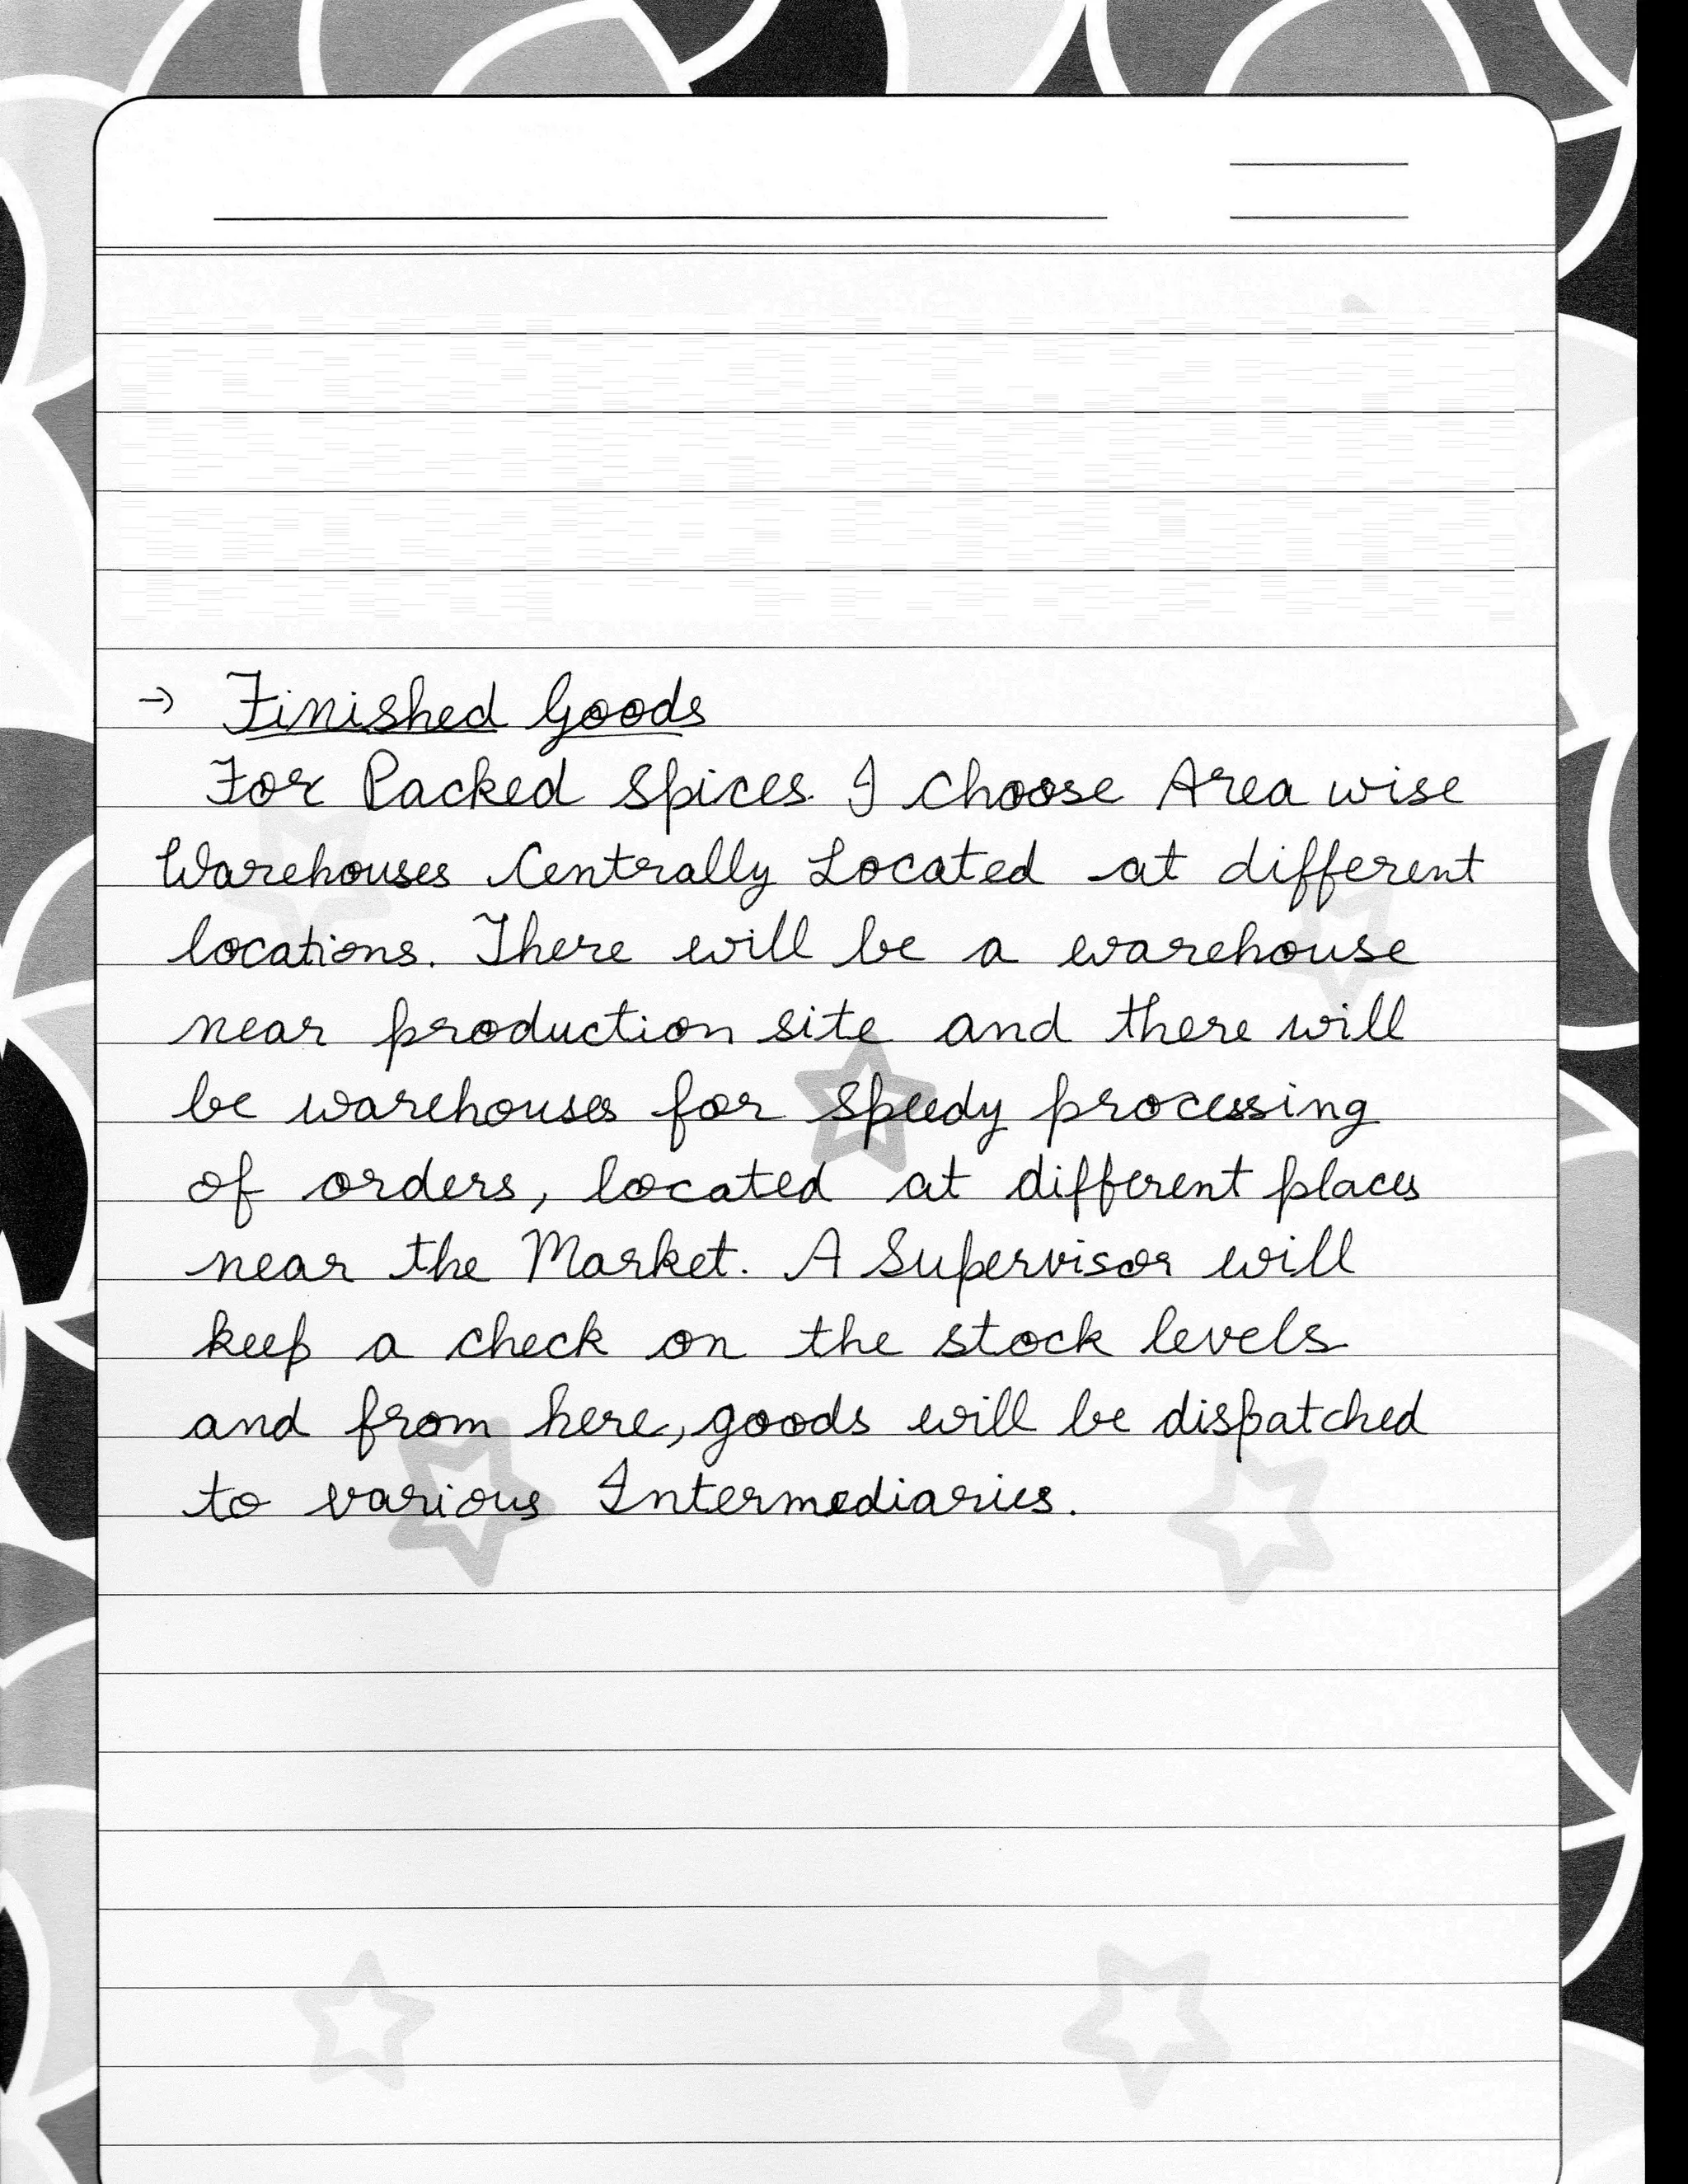 → Finished Goods
For Packed Spices I choose Area wise
Warehouses Centrally Located at different
locations. There will be a warehouse
near production site and there will
be warehouses for speedy processing
of orders, located at different places
near the Market. A Supervisor will
keep a check on the stock levels
and from here, goods will be dispatched
to various Intermediaries.